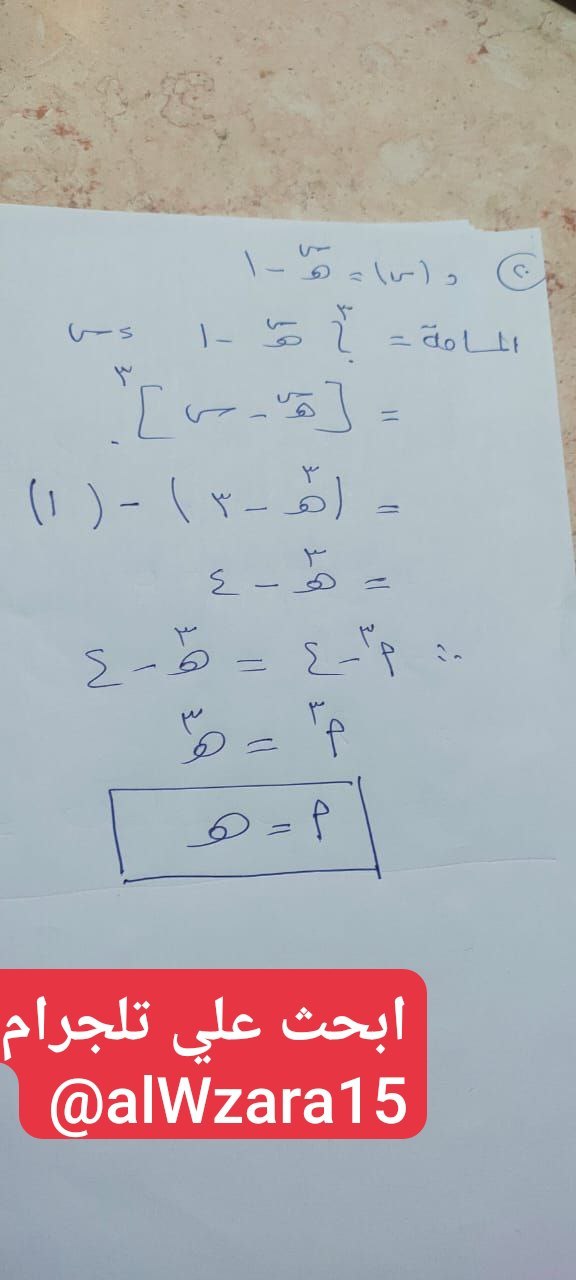 ٢٠ د(س) = هـ^س - ١
المساحة = ∫٠^٣ هـ^س - ١ ءس
= [هـ^س - س]٠^٣
= (هـ^٣ - ٣) - (١)
= هـ^٣ - ٤
∴ م^٣ - ٤ = هـ^٣ - ٤
م^٣ = هـ^٣
م = هـ
ابحث علي تلجرام
@alWzara15